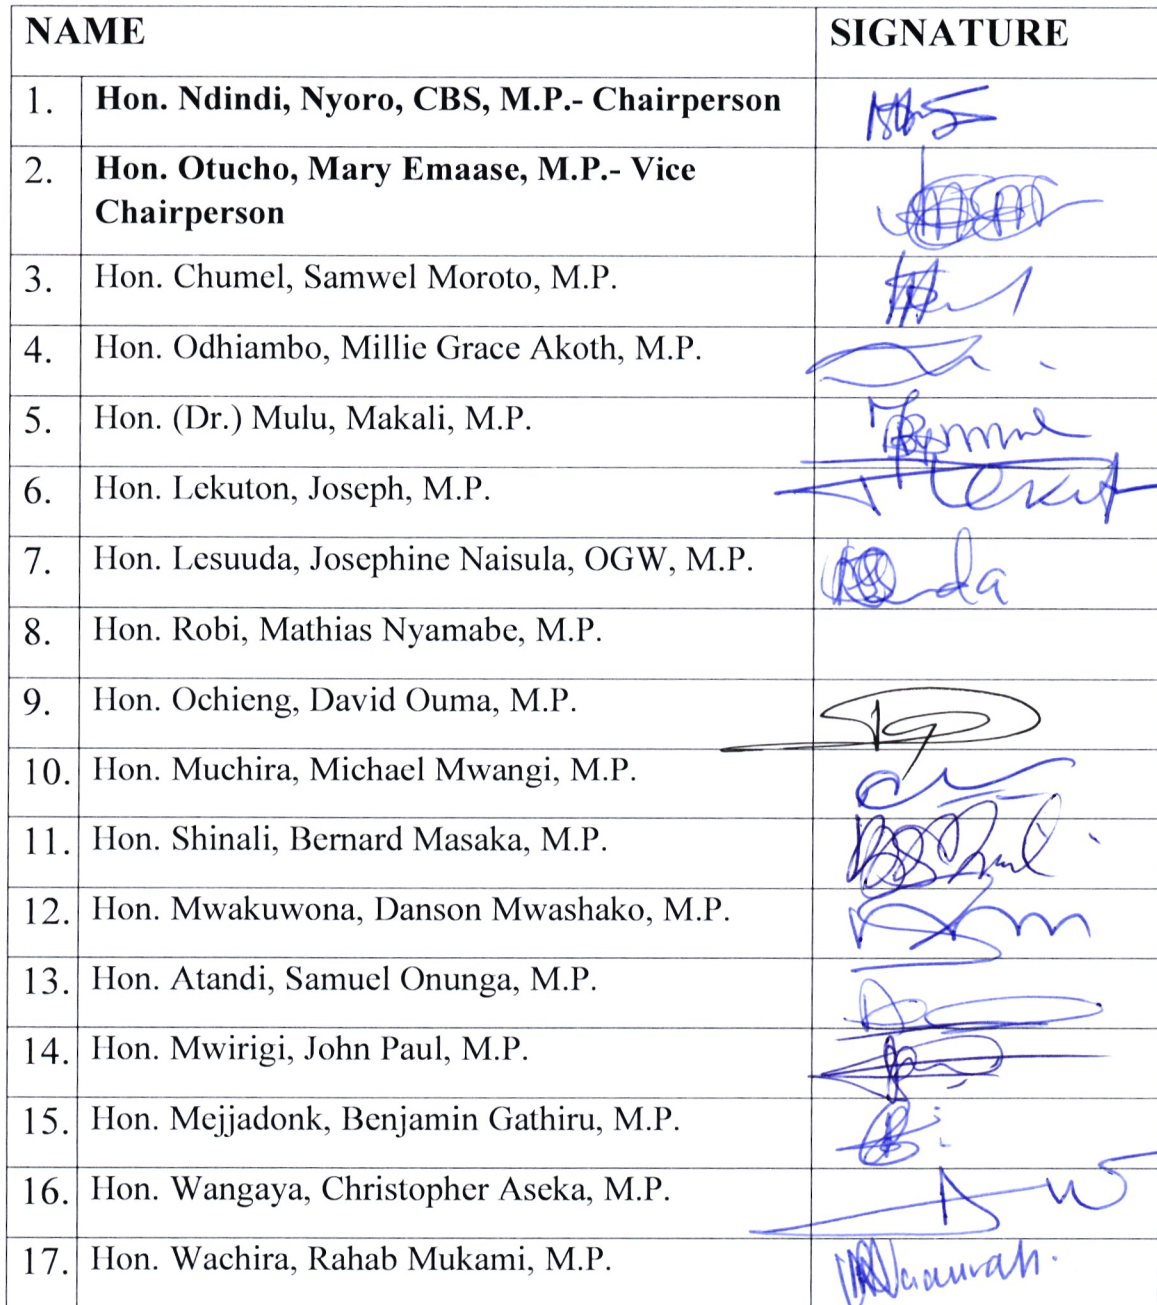 NAME SIGNATURE
1. Hon. Ndindi, Nyoro, CBS, M.P.- Chairperson
2. Hon. Otucho, Mary Emaase, M.P.- Vice
Chairperson
3. Hon. Chumel, Samwel Moroto, M.P.
4. Hon. Odhiambo, Millie Grace Akoth, M.P.
5. Hon. (Dr.) Mulu, Makali, M.P.
6. Hon. Lekuton, Joseph, M.P.
7. Hon. Lesuuda, Josephine Naisula, OGW, M.P.
8. Hon. Robi, Mathias Nyamabe, M.P.
9. Hon. Ochieng, David Ouma, M.P.
10. Hon. Muchira, Michael Mwangi, M.P.
11. Hon. Shinali, Bernard Masaka, M.P.
12. Hon. Mwakuwona, Danson Mwashako, M.P.
13. Hon. Atandi, Samuel Onunga, M.P.
14. Hon. Mwirigi, John Paul, M.P.
15. Hon. Mejjadonk, Benjamin Gathiru, M.P.
16. Hon. Wangaya, Christopher Aseka, M.P.
17. Hon. Wachira, Rahab Mukami, M.P.